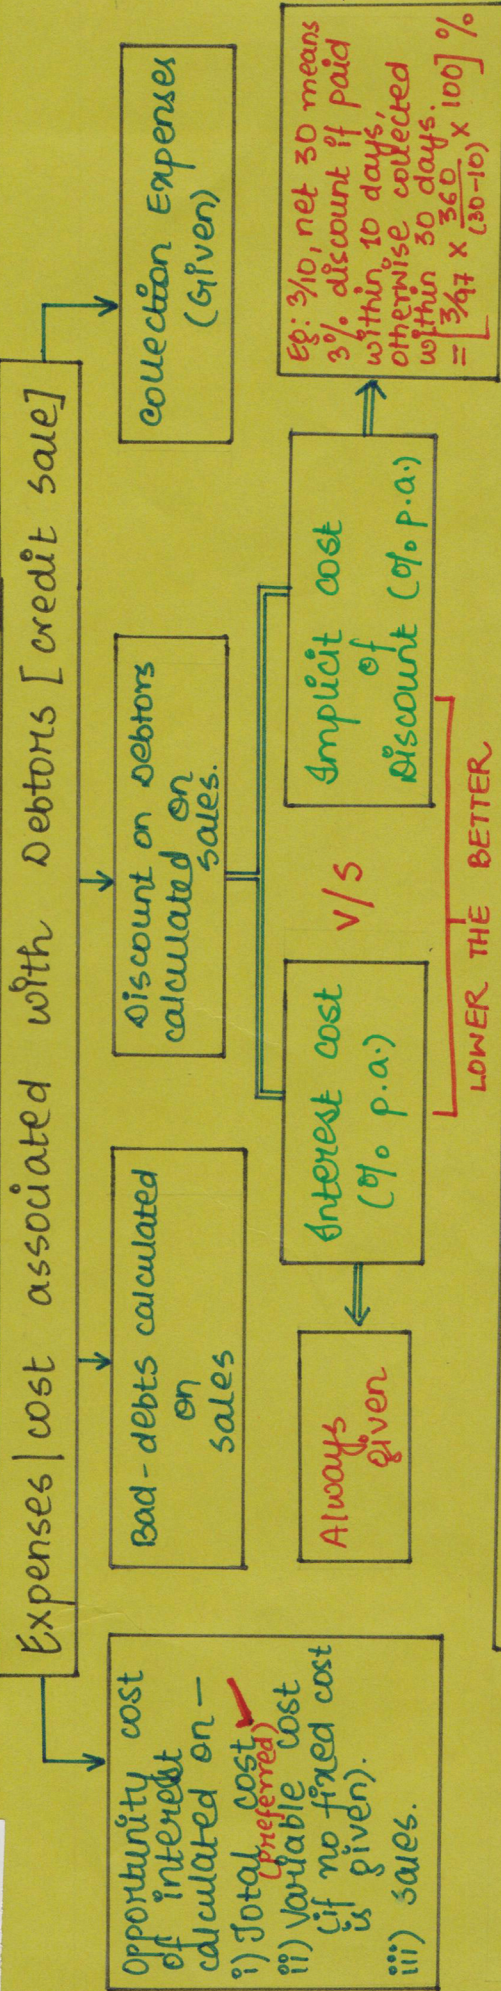 Expenses/cost associated with Debtors [credit sale]
Opportunity cost
of interest
calculated on -
i) Total cost ✓
(preferred)
ii) Variable cost
(if no fixed cost
is given).
iii) Sales.
Bad-debts calculated
on
sales
Discount on Debtors
calculated on
sales.
Collection Expenses
(Given)
Always
given
Interest cost
(% p.a.)
V/S
Implicit cost
of
Discount (% p.a.)
LOWER THE BETTER
Eg: 3/10, net 30 means
3% discount if paid
within 10 days,
otherwise collected
within 30 days.
= [3/97 × 360/(30-10) × 100] %